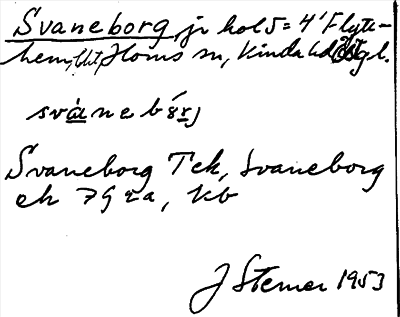 Svaneborg, jr kol 5 = 4' Flytte-
hem, Utt, Horns sn, Kinda hd Östgl.
svánebórj
Svaneborg Tek, Svaneborg
ek 7G ea, Kb
J Sterner 1953